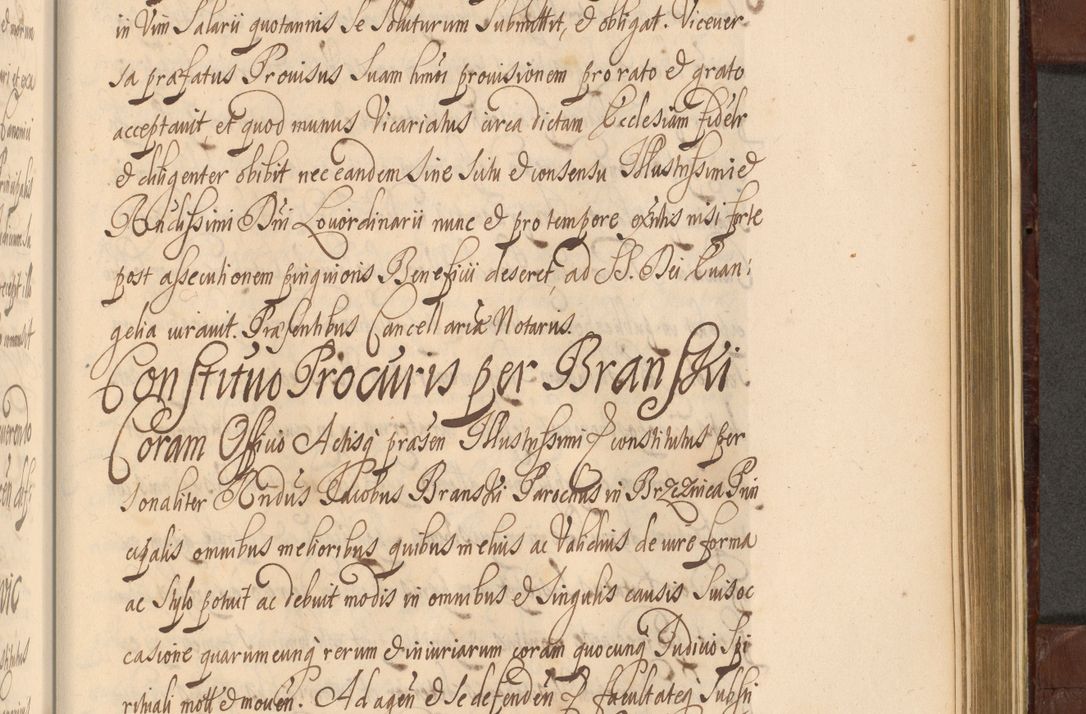 in Vim Salarii quotannis se soluturum submittit, & obligat. Vicever
sa præfatus Provisus suam hmoi provisionem pro rato & grato
acceptavit, et quod munus Vicariatus circa dictam Ecclesiam fidelr
& diligenter obibit nec eandem sine scitu & consensu Illustrissimi &
Rndissimi Dni Loci ordinarii nunc & pro tempore exntis nisi forte
post assecutionem pinquioris Beneficii deseret, ad SS. Dei Evan:
gelia iuravit. Præsentibus Cancellariæ Notariis.
Constituo Procuris per Branski
Coram Officio Actisq præsen Illustrissimi & constitutus per
sonaliter Rndus Jacobus Branski Parochus in Brzezinca Prin
cipalis omnibus melioribus quibus melius ac Validius de iure forma
ac stylo potuit ac debuit modis in omnibus & singulis causis suis oc
casione quarumcunq rerum & iniuriarum coram quocunq Judicio Spi
rituali mott & moven. Ad agen & se defenden & facultateq substi